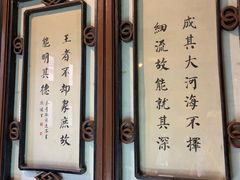 成其大河海不擇
細流故能就其深
王者不却衆庶故
能明其德